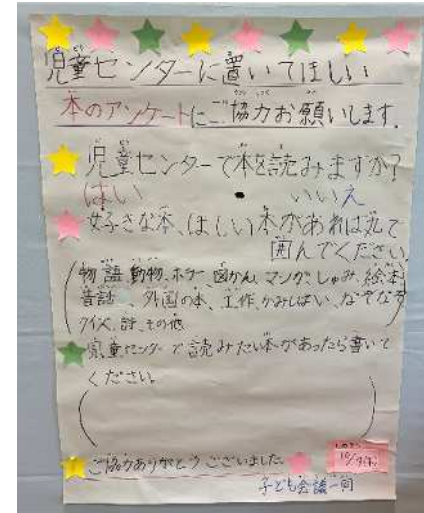 児童センターに置いてほしい
本のアンケートにご協力お願いします。
児童センターで本を読みますか?
はい ・ いいえ
好きな本、ほしい本があれば丸で
囲んでください
物語、動物、ホラー、図かん、マンガ、しゅみ、絵本
昔話、外国の本、工作、かみしばい、なぞなぞ
クイズ、詩、その他
児童センターで読みたい本があったら書いて
ください。
ご協力ありがとうございました。
子ども会議一同